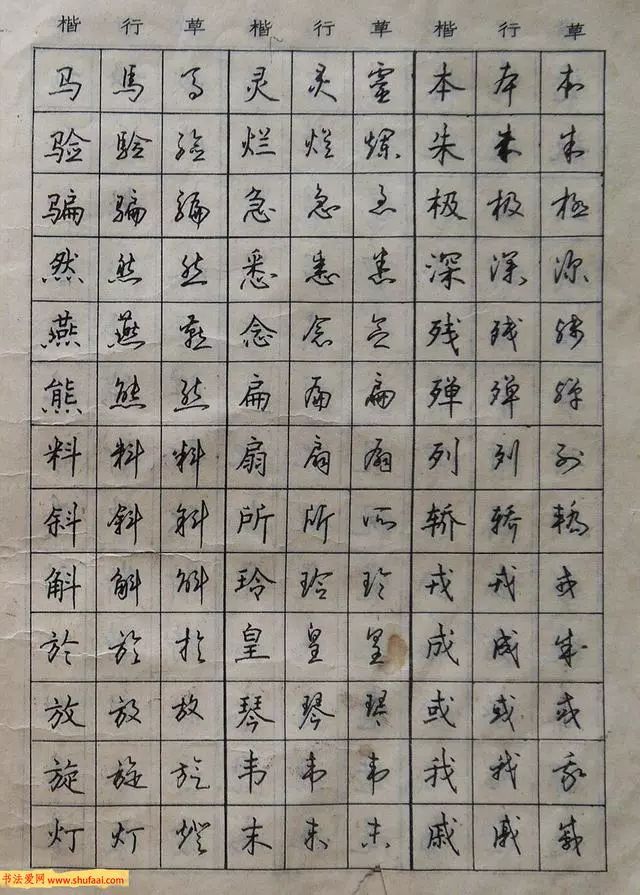 楷 行 草 楷 行 草 楷 行 草
马 馬 马 灵 灵 靈 本 本 本
验 验 验 烂 烂 爛 朱 朱 朱
骗 骗 骗 急 急 急 极 极 極
然 然 然 悉 悉 悉 深 深 深
燕 燕 燕 念 念 念 残 残 残
熊 熊 熊 扁 扁 扁 殚 殚 殚
料 料 料 扇 扇 扇 列 列 列
斜 斜 斜 所 所 所 轿 轿 轎
斛 斛 斛 玲 玲 玲 戎 戎 戎
於 於 於 皇 皇 皇 成 成 成
放 放 放 琴 琴 琴 或 或 或
旋 旋 旋 韦 韦 韦 我 我 我
灯 灯 燈 末 末 末 戚 戚 戚
书法爱网
www.shufaai.com